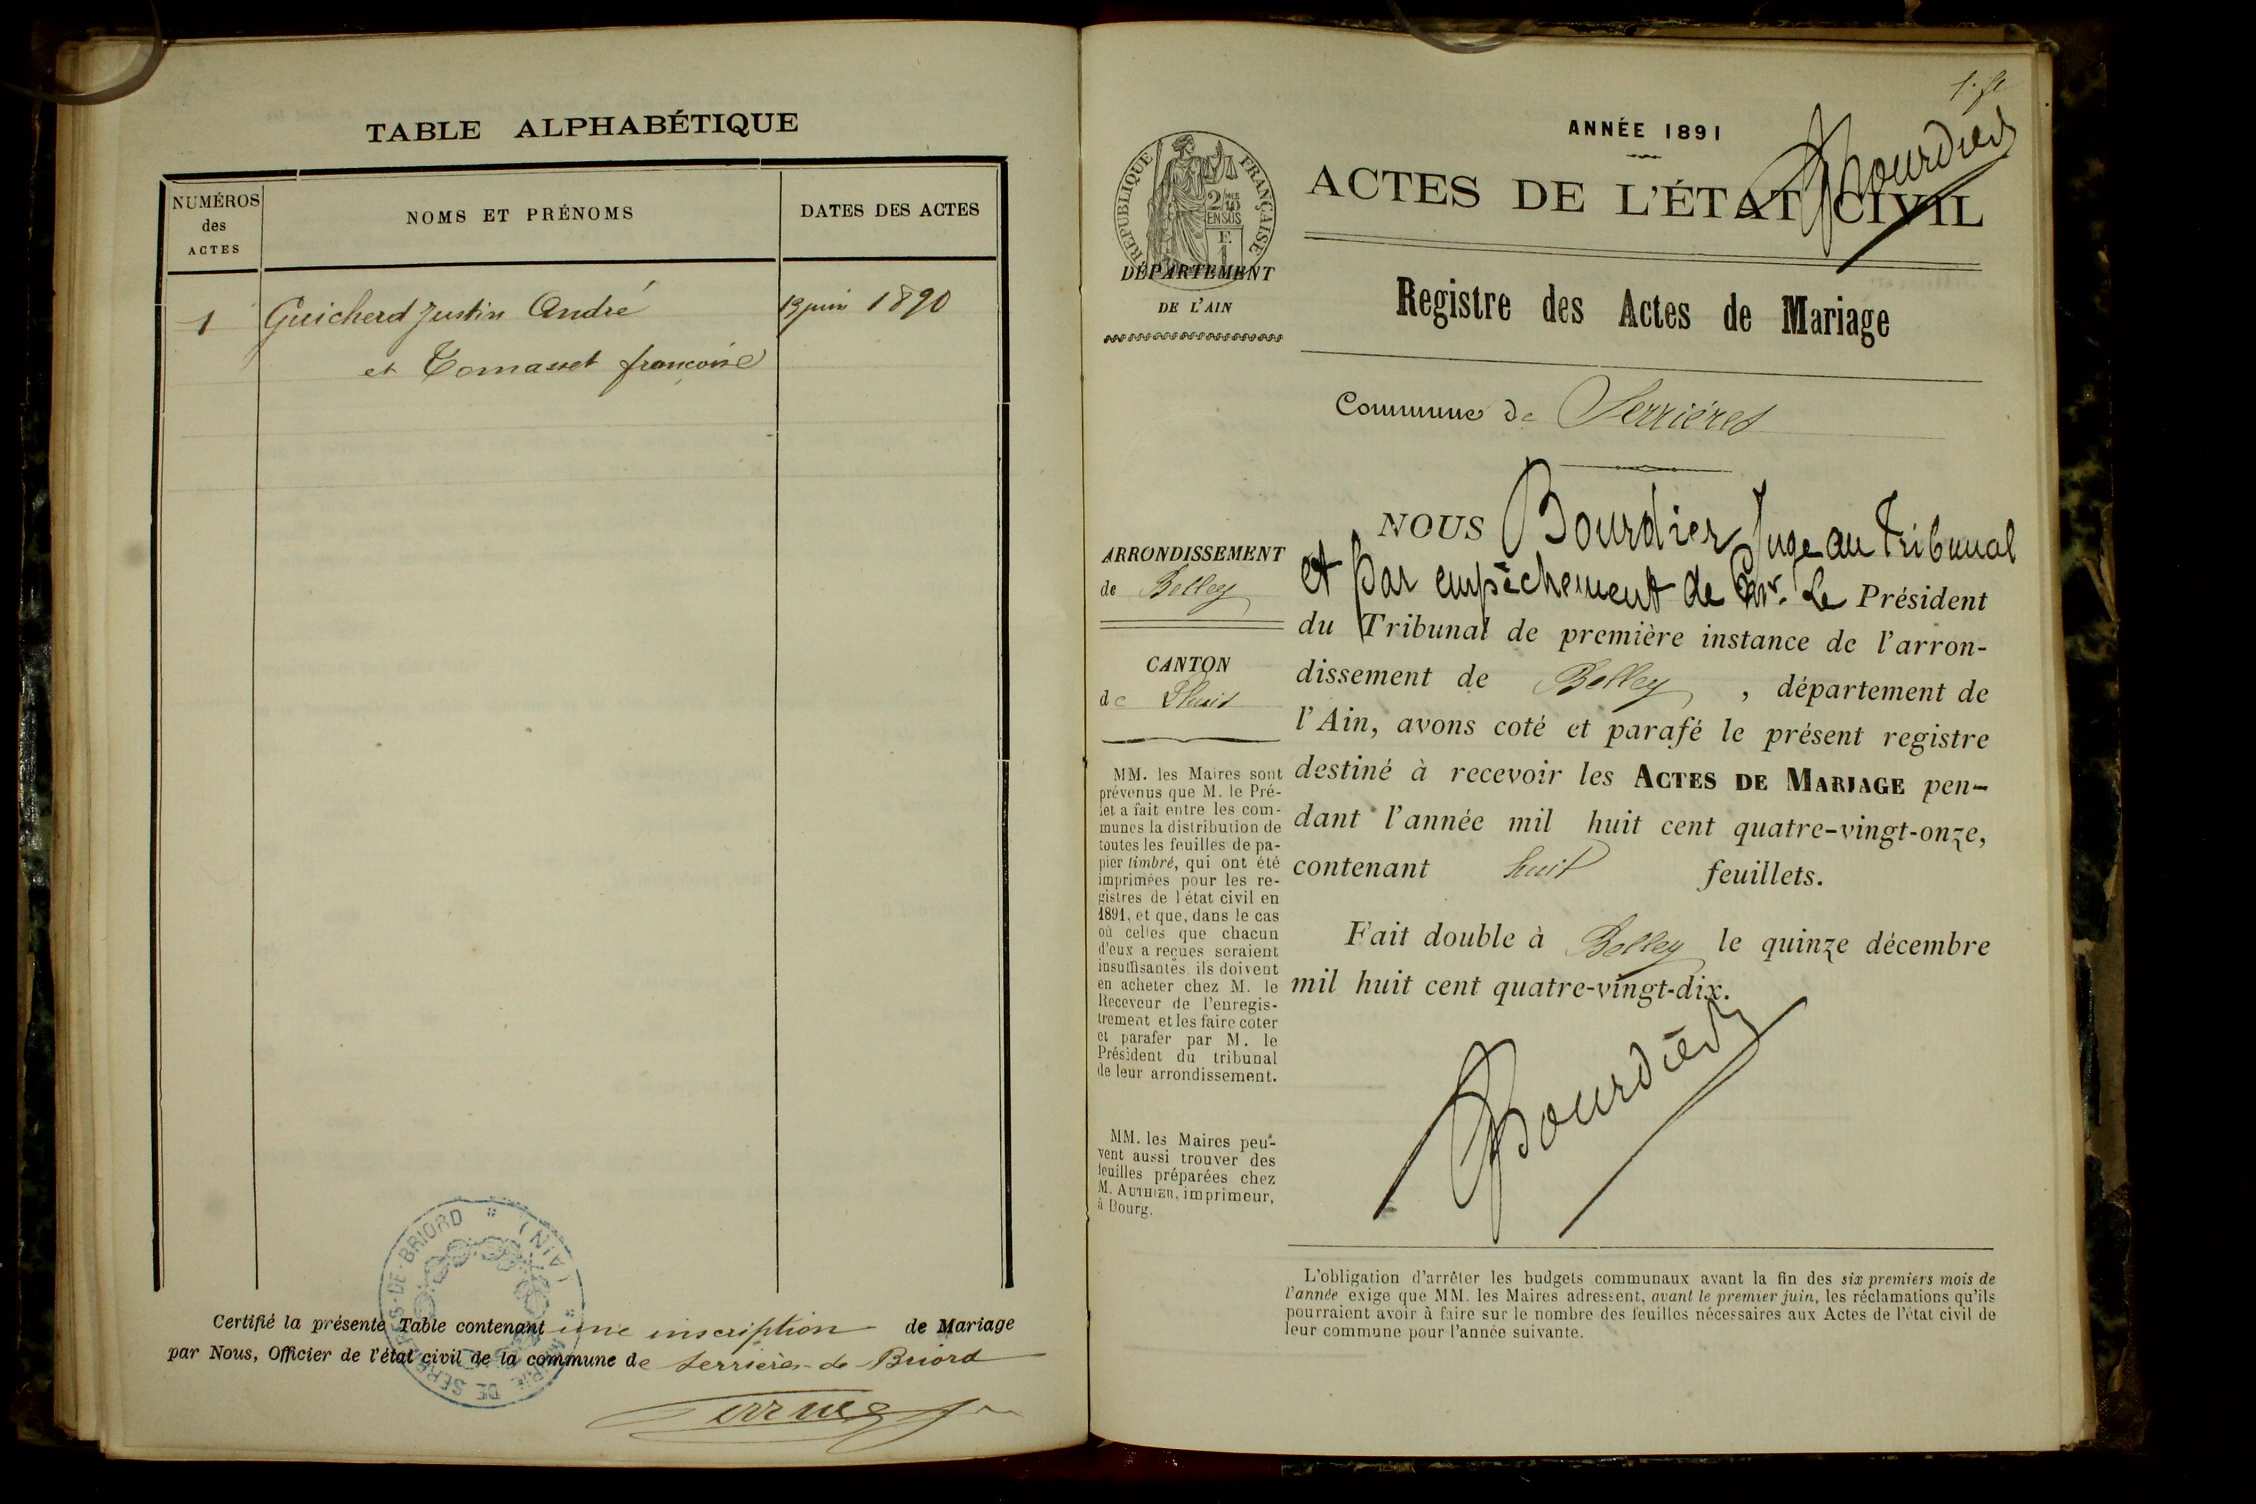 TABLE ALPHABÉTIQUE
NUMÉROS
des
ACTES
NOMS ET PRÉNOMS
DATES DES ACTES
1 Guicherd Justin André 13 juin 1890
et Tomasset françoise
MAIRIE DE SERRIÈRES-DE-BRIORD (AIN)
Certifié la présente Table contenant une inscription de Mariage
par Nous, Officier de l'état civil de la commune de Serrières-de-Briord
ANNÉE 1891
Bourdier
ACTES DE L'ÉTAT CIVIL
RÉPUBLIQUE FRANÇAISE
DÉPARTEMENT
DE L'AIN
Registre des Actes de Mariage
Commune de Serrières
ARRONDISSEMENT
de Belley
CANTON
de Lhuis
MM. les Maires sont
prévenus que M. le Pré-
fet a fait entre les com-
munes la distribution de
toutes les feuilles de pa-
pier timbré, qui ont été
imprimées pour les re-
gistres de l'état civil en
1891, et que, dans le cas
où celles que chacun
d'eux a reçues seraient
insuffisantes, ils doivent
en acheter chez M. le
Receveur de l'enregis-
trement et les faire coter
et parafer par M. le
Président du tribunal
de leur arrondissement.
MM. les Maires peu-
vent aussi trouver des
feuilles préparées chez
M. AUTHIER, imprimeur,
à Bourg.
NOUS Bourdier, Juge au Tribunal
et par empêchement de Mr. Le Président
du Tribunal de première instance de l'arron-
dissement de Belley, département de
l'Ain, avons coté et parafé le présent registre
destiné à recevoir les ACTES DE MARIAGE pen-
dant l'année mil huit cent quatre-vingt-onze,
contenant huit feuillets.
Fait double à Belley le quinze décembre
mil huit cent quatre-vingt-dix.
Bourdier
L'obligation d'arrêter les budgets communaux avant la fin des six premiers mois de
l'année exige que MM. les Maires adressent, avant le premier juin, les réclamations qu'ils
pourraient avoir à faire sur le nombre des feuilles nécessaires aux Actes de l'état civil de
leur commune pour l'année suivante.